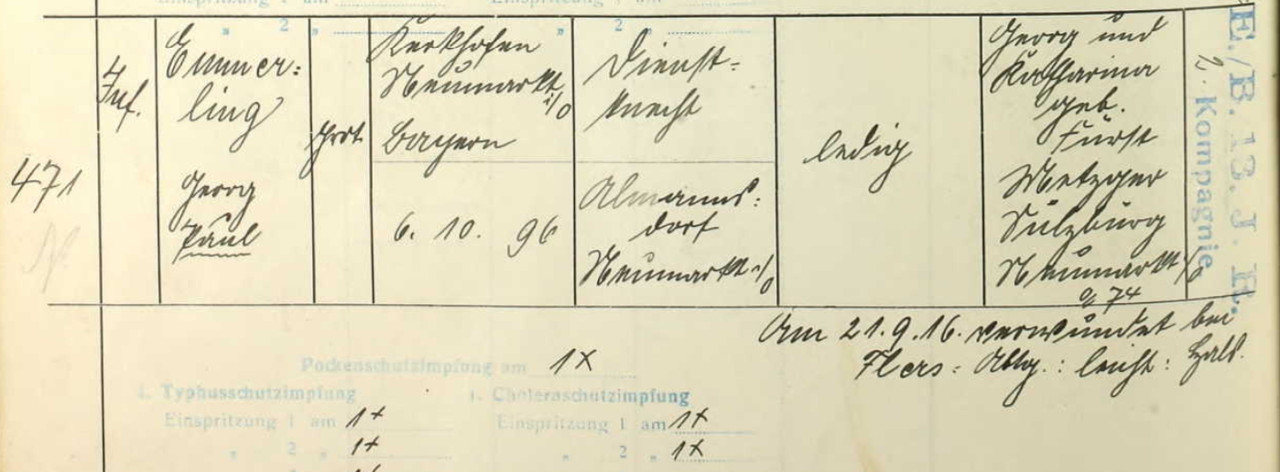 Einspritzung 1 am
Einspritzung 1 am
" 2 "
" 2 "
471
Inf.
Emmer:
ling
Georg
Paul
prot.
Kerkhofen
Neumarkt
i/O
Bayern
6. 10. 96
Dienst=
knecht
Almanns:
dorf
Neumarkt i/O
ledig
Georg und
Katharina
geb.
Fürst
Metzger
Sulzburg
Neumarkt i/O
74
E./B. 13. J. R.
2. Kompagnie
Am 21.9.16. verwundet bei
Flers: : leicht: Hals.
Pockenschutzimpfung am 1x
1. Typhusschutzimpfung
Einspritzung 1 am 1x
" 2 " 1x
1. Choleraschutzimpfung
Einspritzung 1 am 1x
" 2 " 1x